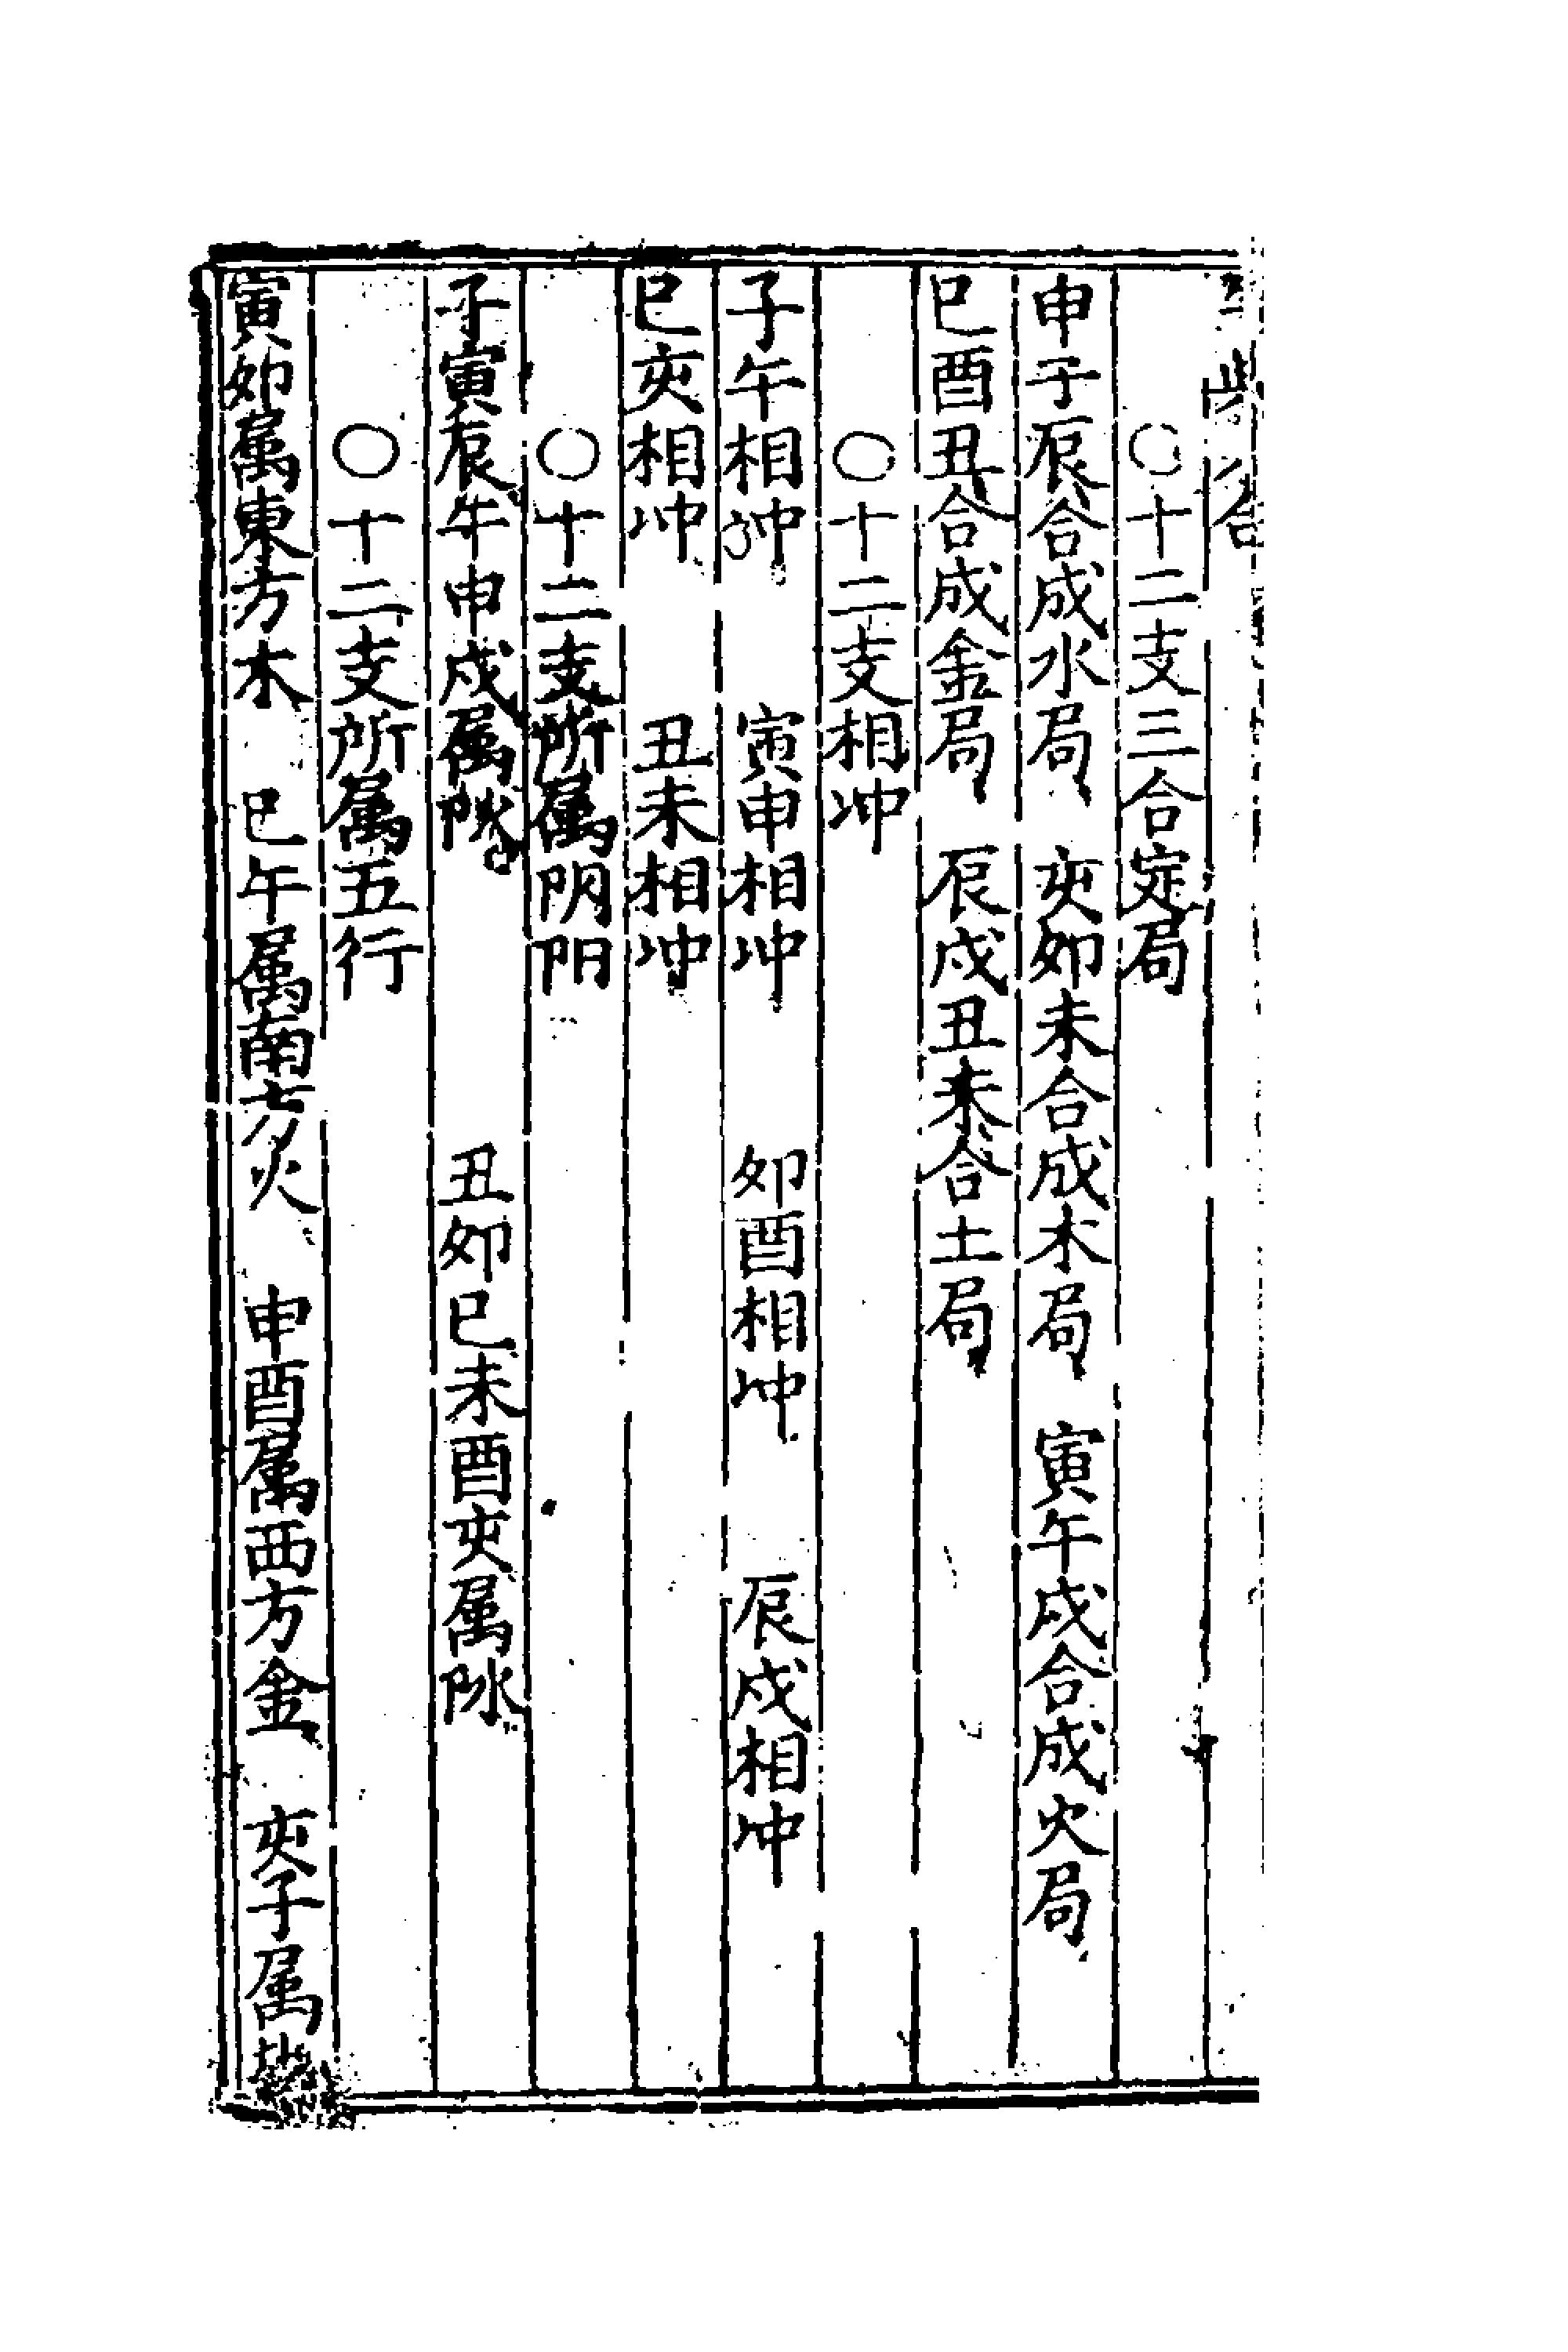 〇十二支三合定局
申子辰合成水局　亥卯未合成木局　寅午戌合成火局
巳酉丑合成金局　辰戌丑未合土局
〇十二支相冲
子午相冲　寅申相冲　卯酉相冲　辰戌相冲
巳亥相冲　丑未相冲
〇十二支所属阴阳
子寅辰午申戌属阦　丑卯巳未酉亥属阥
〇十二支所属五行
寅卯属東方木　巳午属南方火　申酉属西方金　亥子属